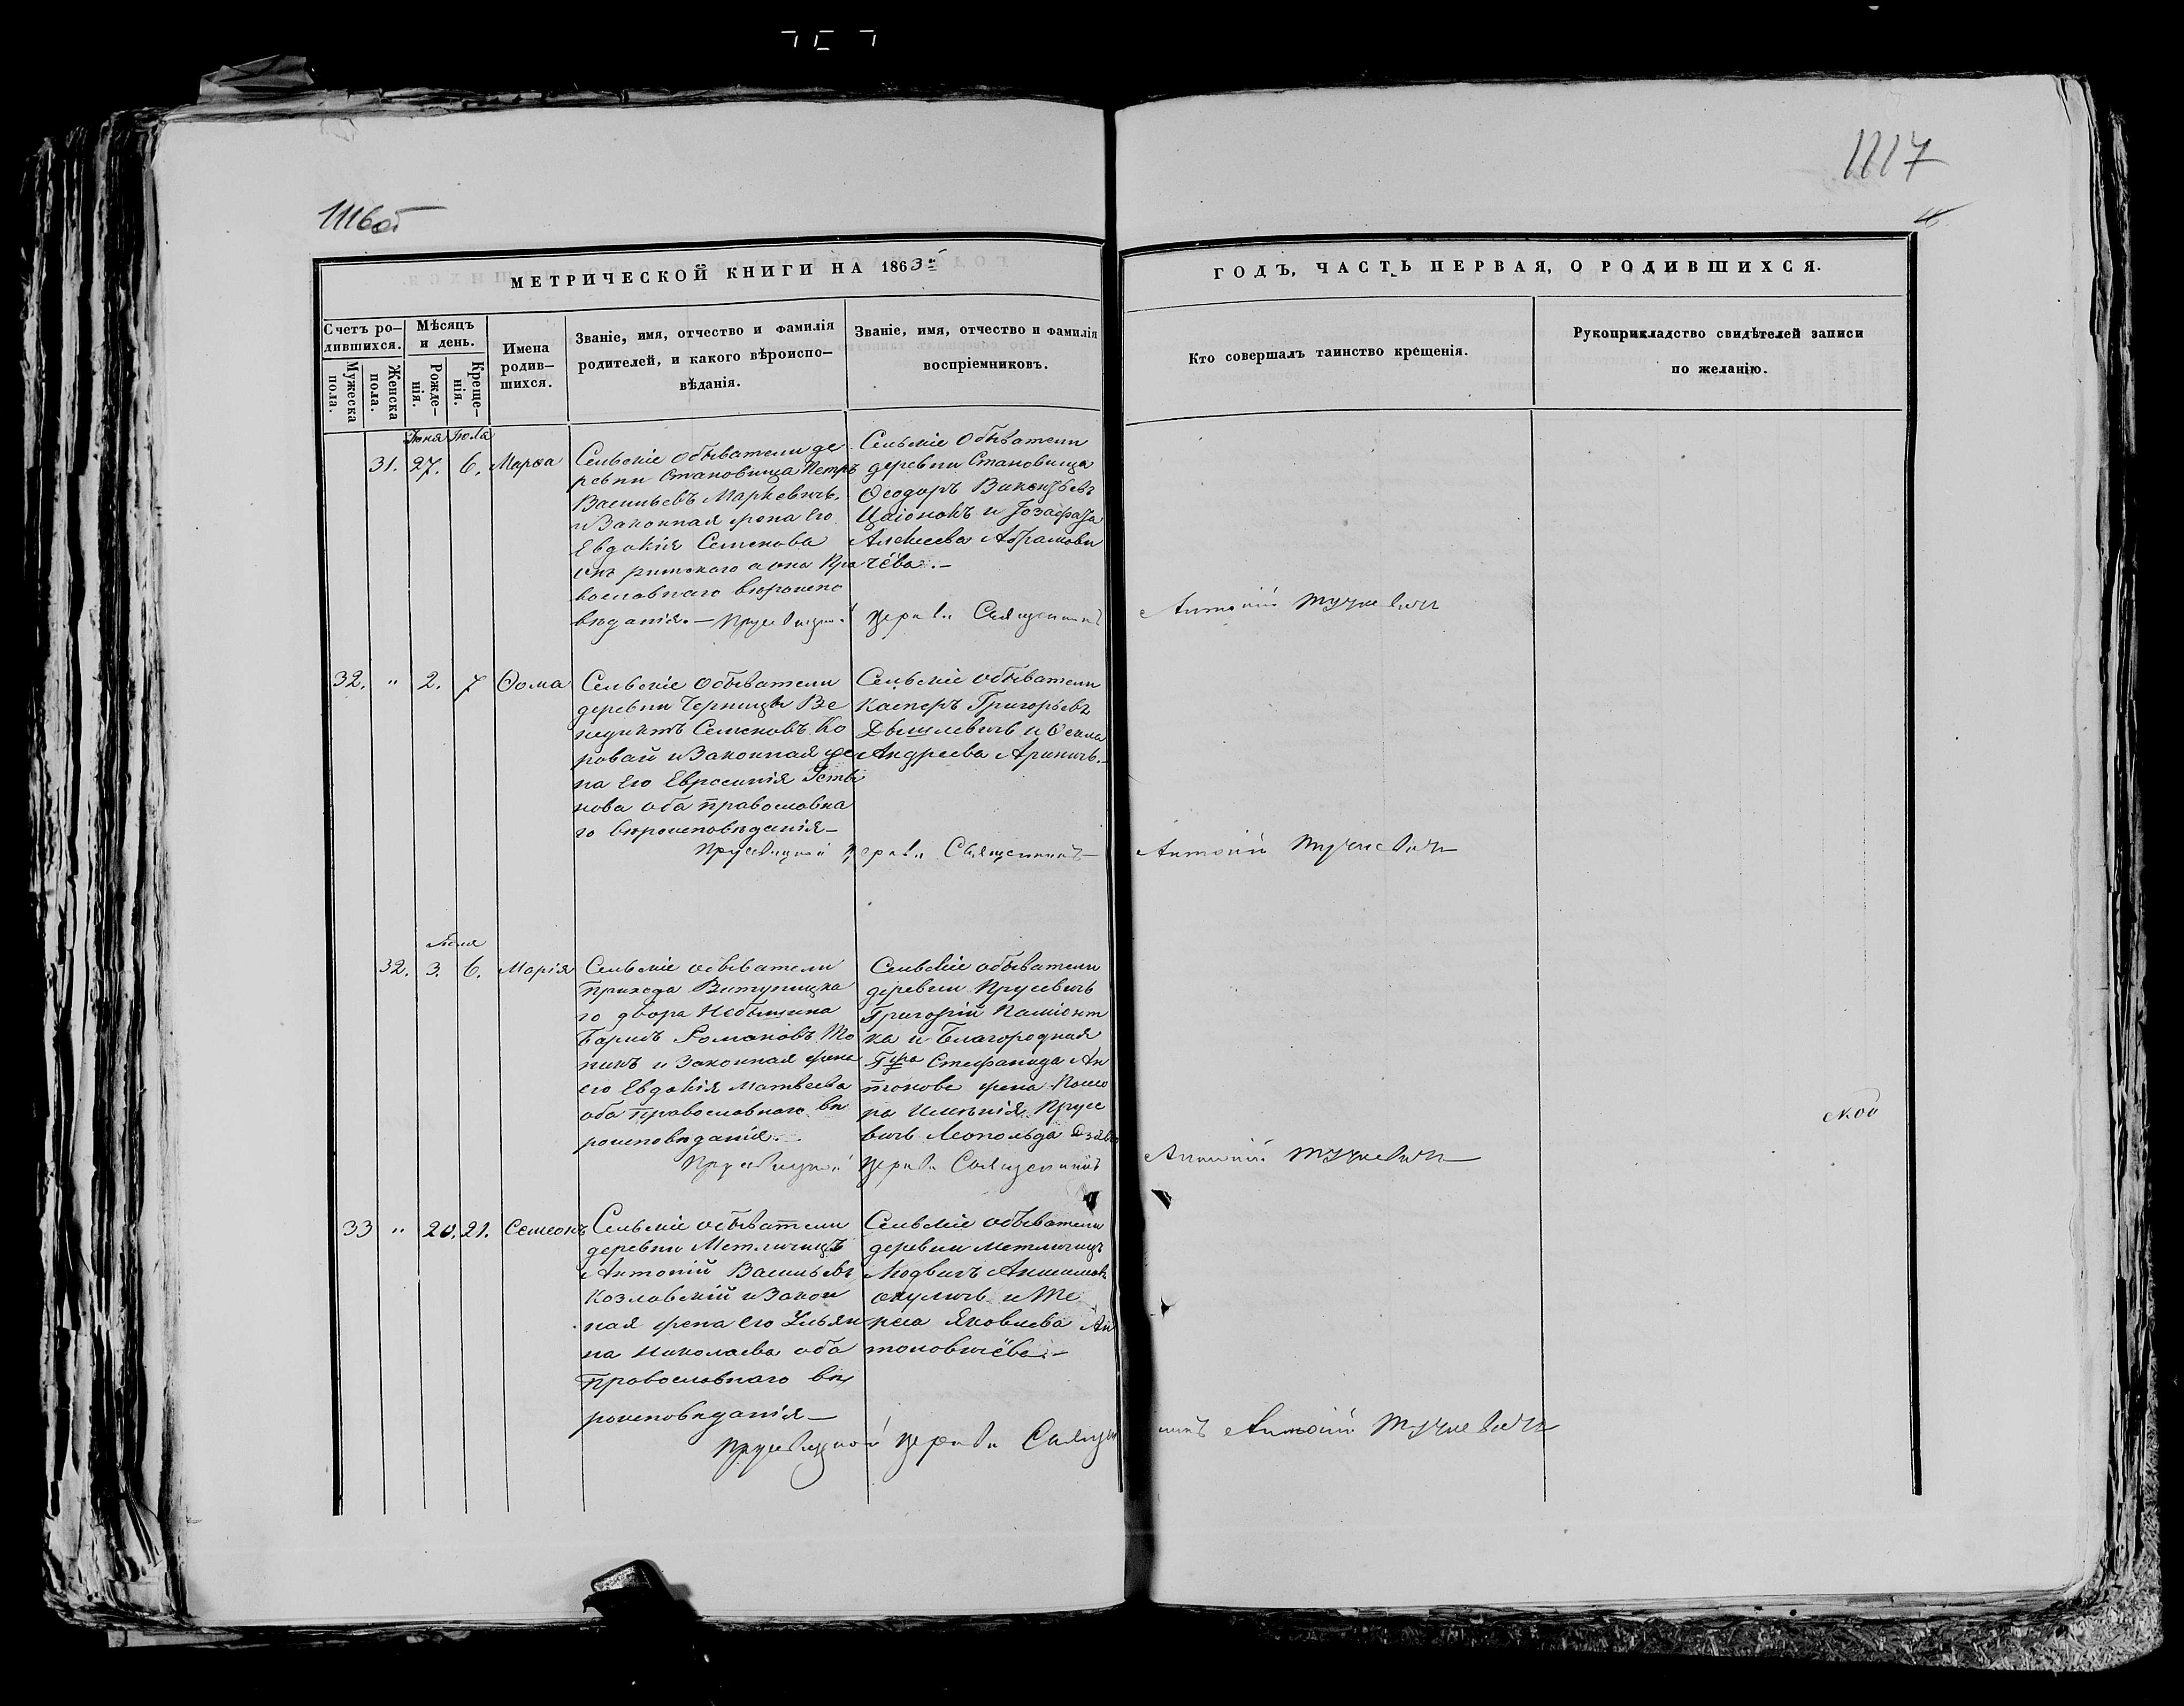 1116об
1117
МЕТРИЧЕСКОЙ КНИГИ НА 1863й
ГОДЪ, ЧАСТЬ ПЕРВАЯ, О РОДИВШИХСЯ.
Счетъ ро-
дившихся.
Мужеска
пола.
Женска
пола.
Мѣсяцъ
и день.
Рожде-
нія.
Креще-
нія.
Имена
родив-
шихся.
Званіе, имя, отчество и фамилія
родителей, и какого вѣроиспо-
вѣданія.
Званіе, имя, отчество и фамилія
воспріемниковъ.
Кто совершалъ таинство крещенія.
Рукоприкладство свидѣтелей записи
по желанію.
Іюня Іюля
31. 27. 6. Марѳа
Сельскіе обыватели де
ревни Становища Петръ
Васильевъ Маркевичъ,
и Законная жена Его
Евдокія Семенова
онъ римскаго а она Пра
вославнаго вѣроиспо
вѣданія.—
Сельскіе Обыватели
деревни Становища
Ѳеодоръ Викентьевъ
и Іозафата
Алексеева Абрамови
чёва.—
Прусевицкой церкви Священникъ
Антоній Тучкевичъ
32. " 2. 7 Ѳома
Сельскіе обыватели
деревни Черницы Ве
недиктъ Семеновъ Ко
ровай и Законная же
на Его Евросинія Усти
нова оба православна
го вѣроисповѣданія—
Сельскіе обыватели
Касперъ Григорьевъ
и Ѳекла
Андреева
Прусевицкой церкви Священникъ—
Антоній Тучкевичъ
Іюля
32. 3. 6. Марія
Сельскіе обыватели
прихода Витуницка
го двора Небышина
Романовъ То
и Законная жена
его Евдокія Матвѣева
оба православнаго вѣ
роисповѣданія.
Сельскіе обыватели
деревни Прусевичъ
Григорій
ка и Благородная
Г-жа Стефанида Ан
тонова жена
ра Имѣнія Прусе
вичъ Леопольда
ской
Прусевицкой церкви Священникъ
Антоній Тучкевичъ
33 " 20. 21. Семеонъ
Сельскіе обыватели
деревни Метличицъ
Антоній Васильевъ
Козловскій и Закон
ная жена его Ульян
на Николаева оба
православнаго вѣ
роисповѣданія—
Сельскіе обыватели
деревни Метличицъ
Людвигъ
Акуличъ и Те
реса Яковлева Ан
тоновичёва.—
Прусевицкой церкви Священ
никъ Антоній Тучкевичъ